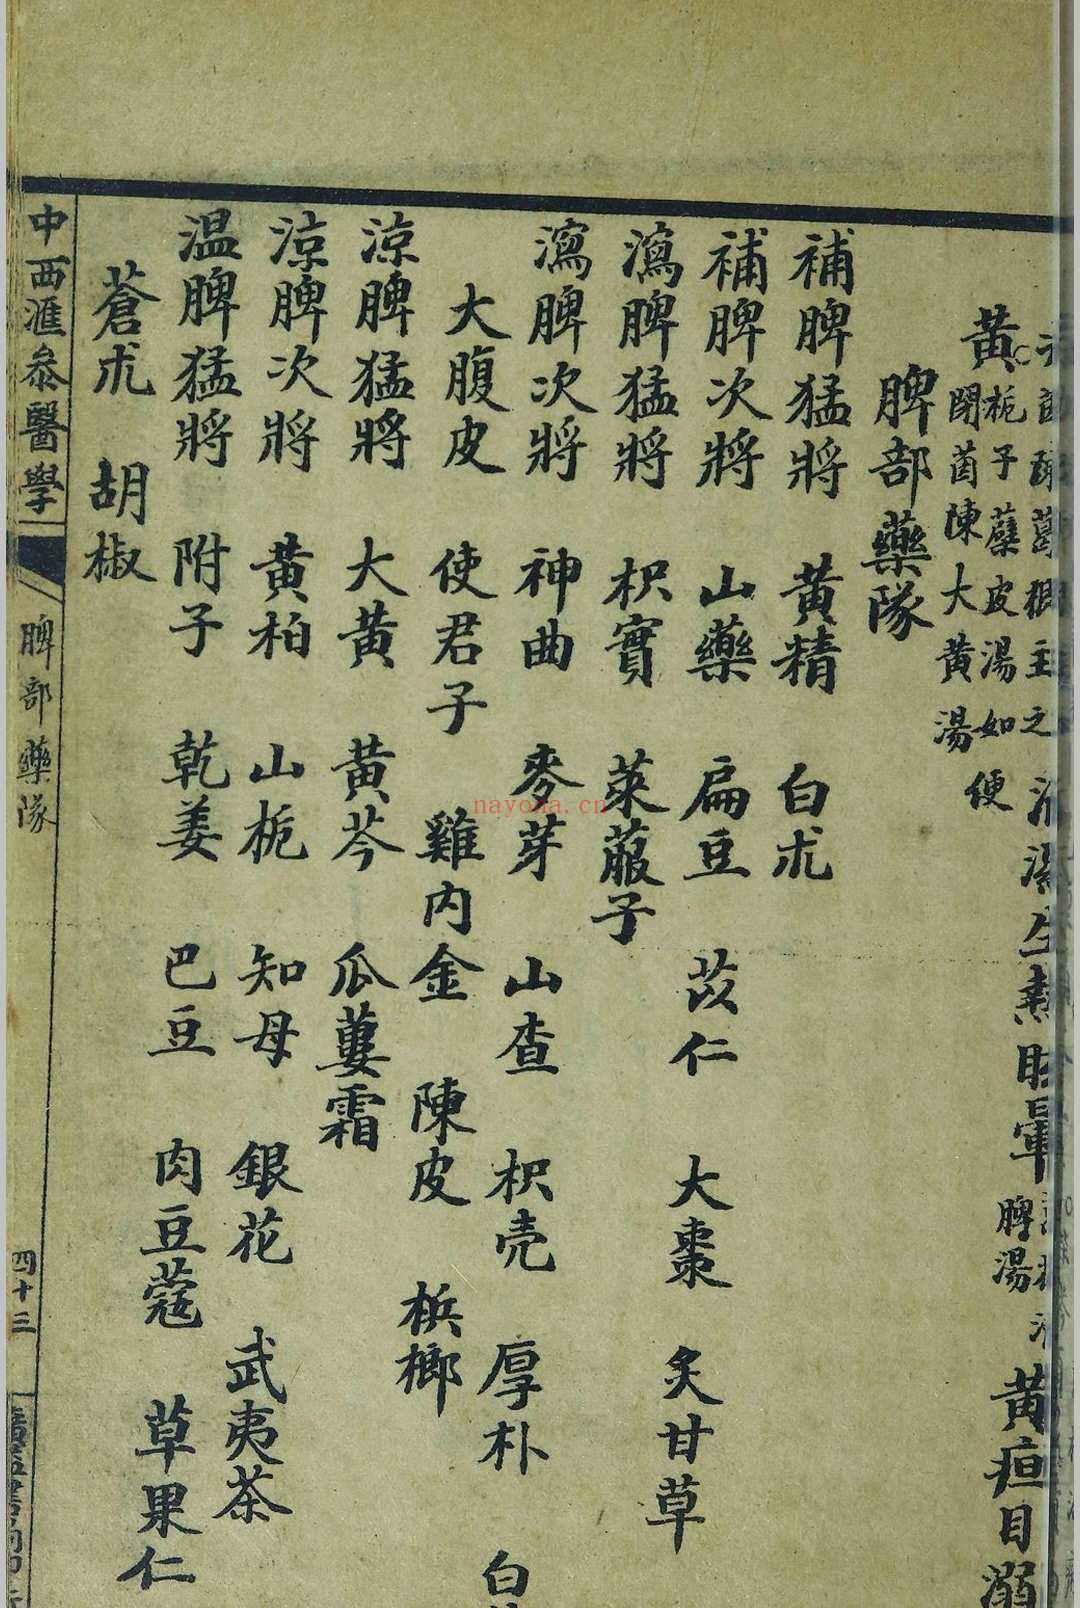 葛根主之
生熱眩暈
脾湯
黃疸目溺
黃
梔子蘗皮湯如便
閉茵陳大黃湯
脾部藥隊
補脾猛將 黃精 白朮
補脾次將 山藥 扁豆 苡仁 大棗 炙甘草
瀉脾猛將 枳實 萊菔子
瀉脾次將 神曲 麥芽 山查 枳壳 厚朴 白
大腹皮 使君子 雞內金 陳皮 梹榔
涼脾猛將 大黃 黃芩 瓜蔞霜
涼脾次將 黃柏 山梔 知母 銀花 武夷茶
温脾猛將 附子 乾姜 巴豆 肉豆蔻 草果仁
蒼朮 胡椒
中西滙叅醫學
脾部藥隊
四十三
廣益書局印行
nayona.cn